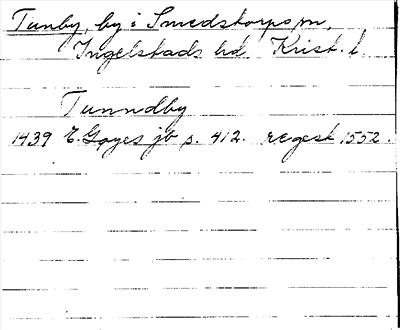 Tunby, by i Smedstorps sn,
Ingelstads hd Krist. l.
Tunndby
1439 E. Gøyes jb s. 412. regest 1552.